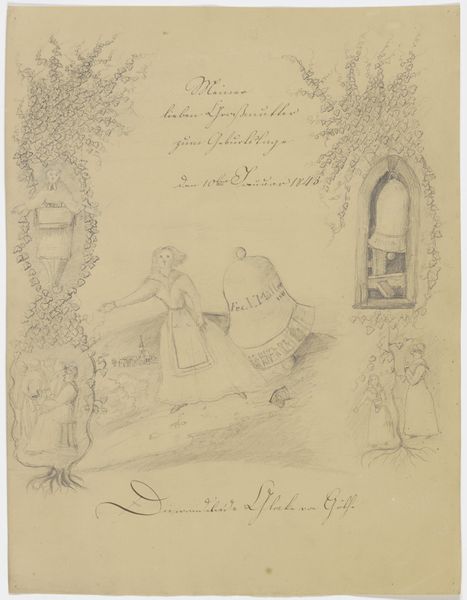 Meiner
lieben Großmutter
zum Geburtstage
den 10ten Januar 1846
Die wandelnde Glocke von Göthe